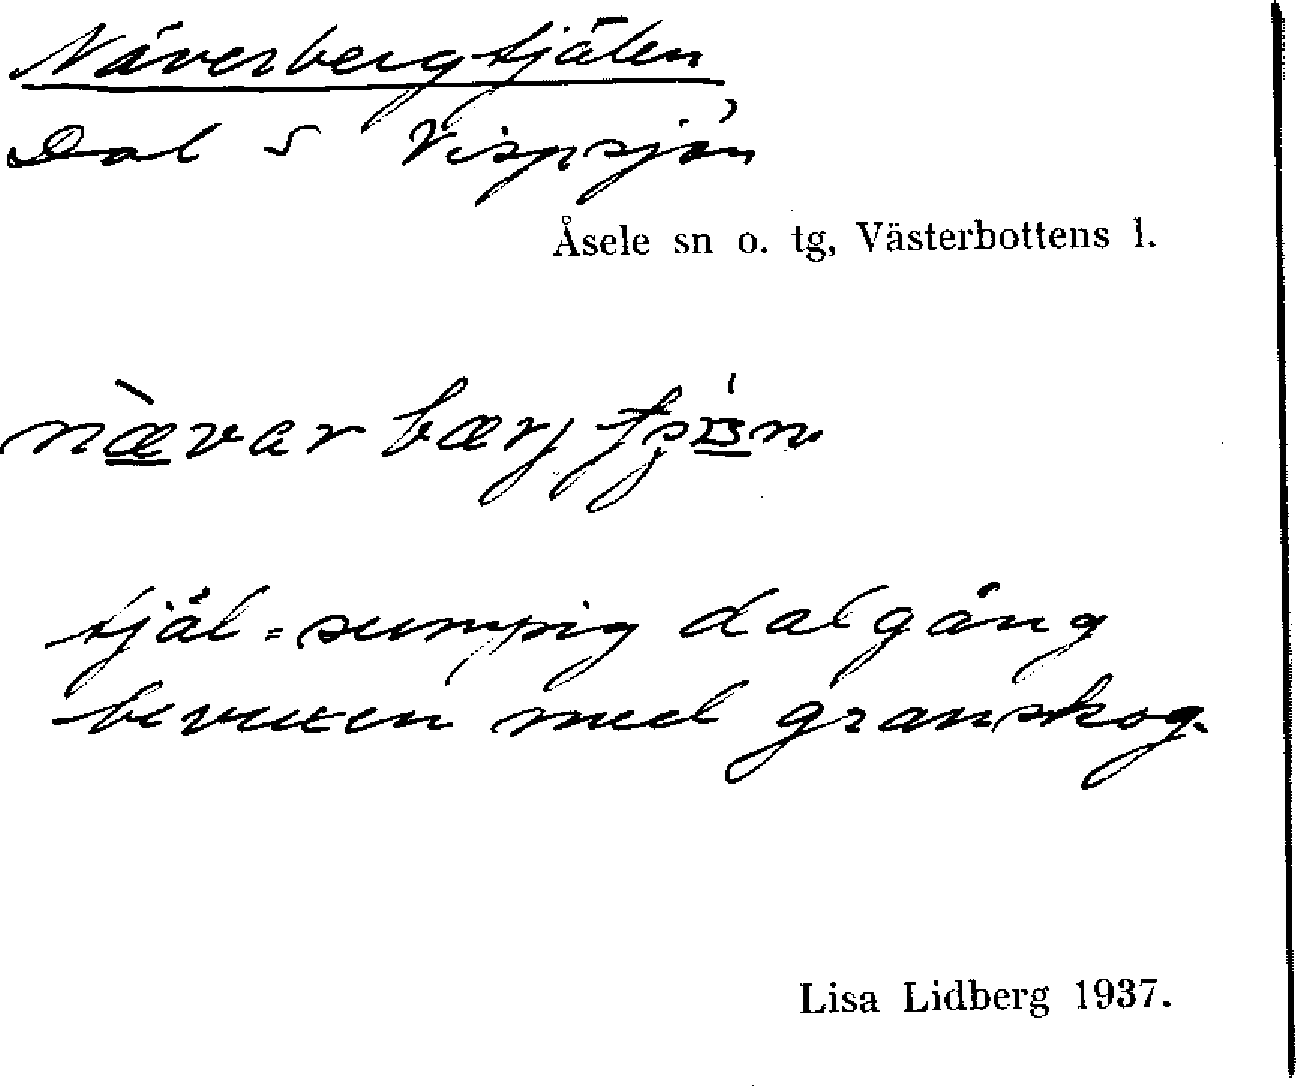 Näverbergtjälen
Dal S Vispsjön
Åsele sn o. tg, Västerbottens l.
nævar bærj
tjäl = sumpig dalgång
bevuxen med granskog.
Lisa Lidberg 1937.